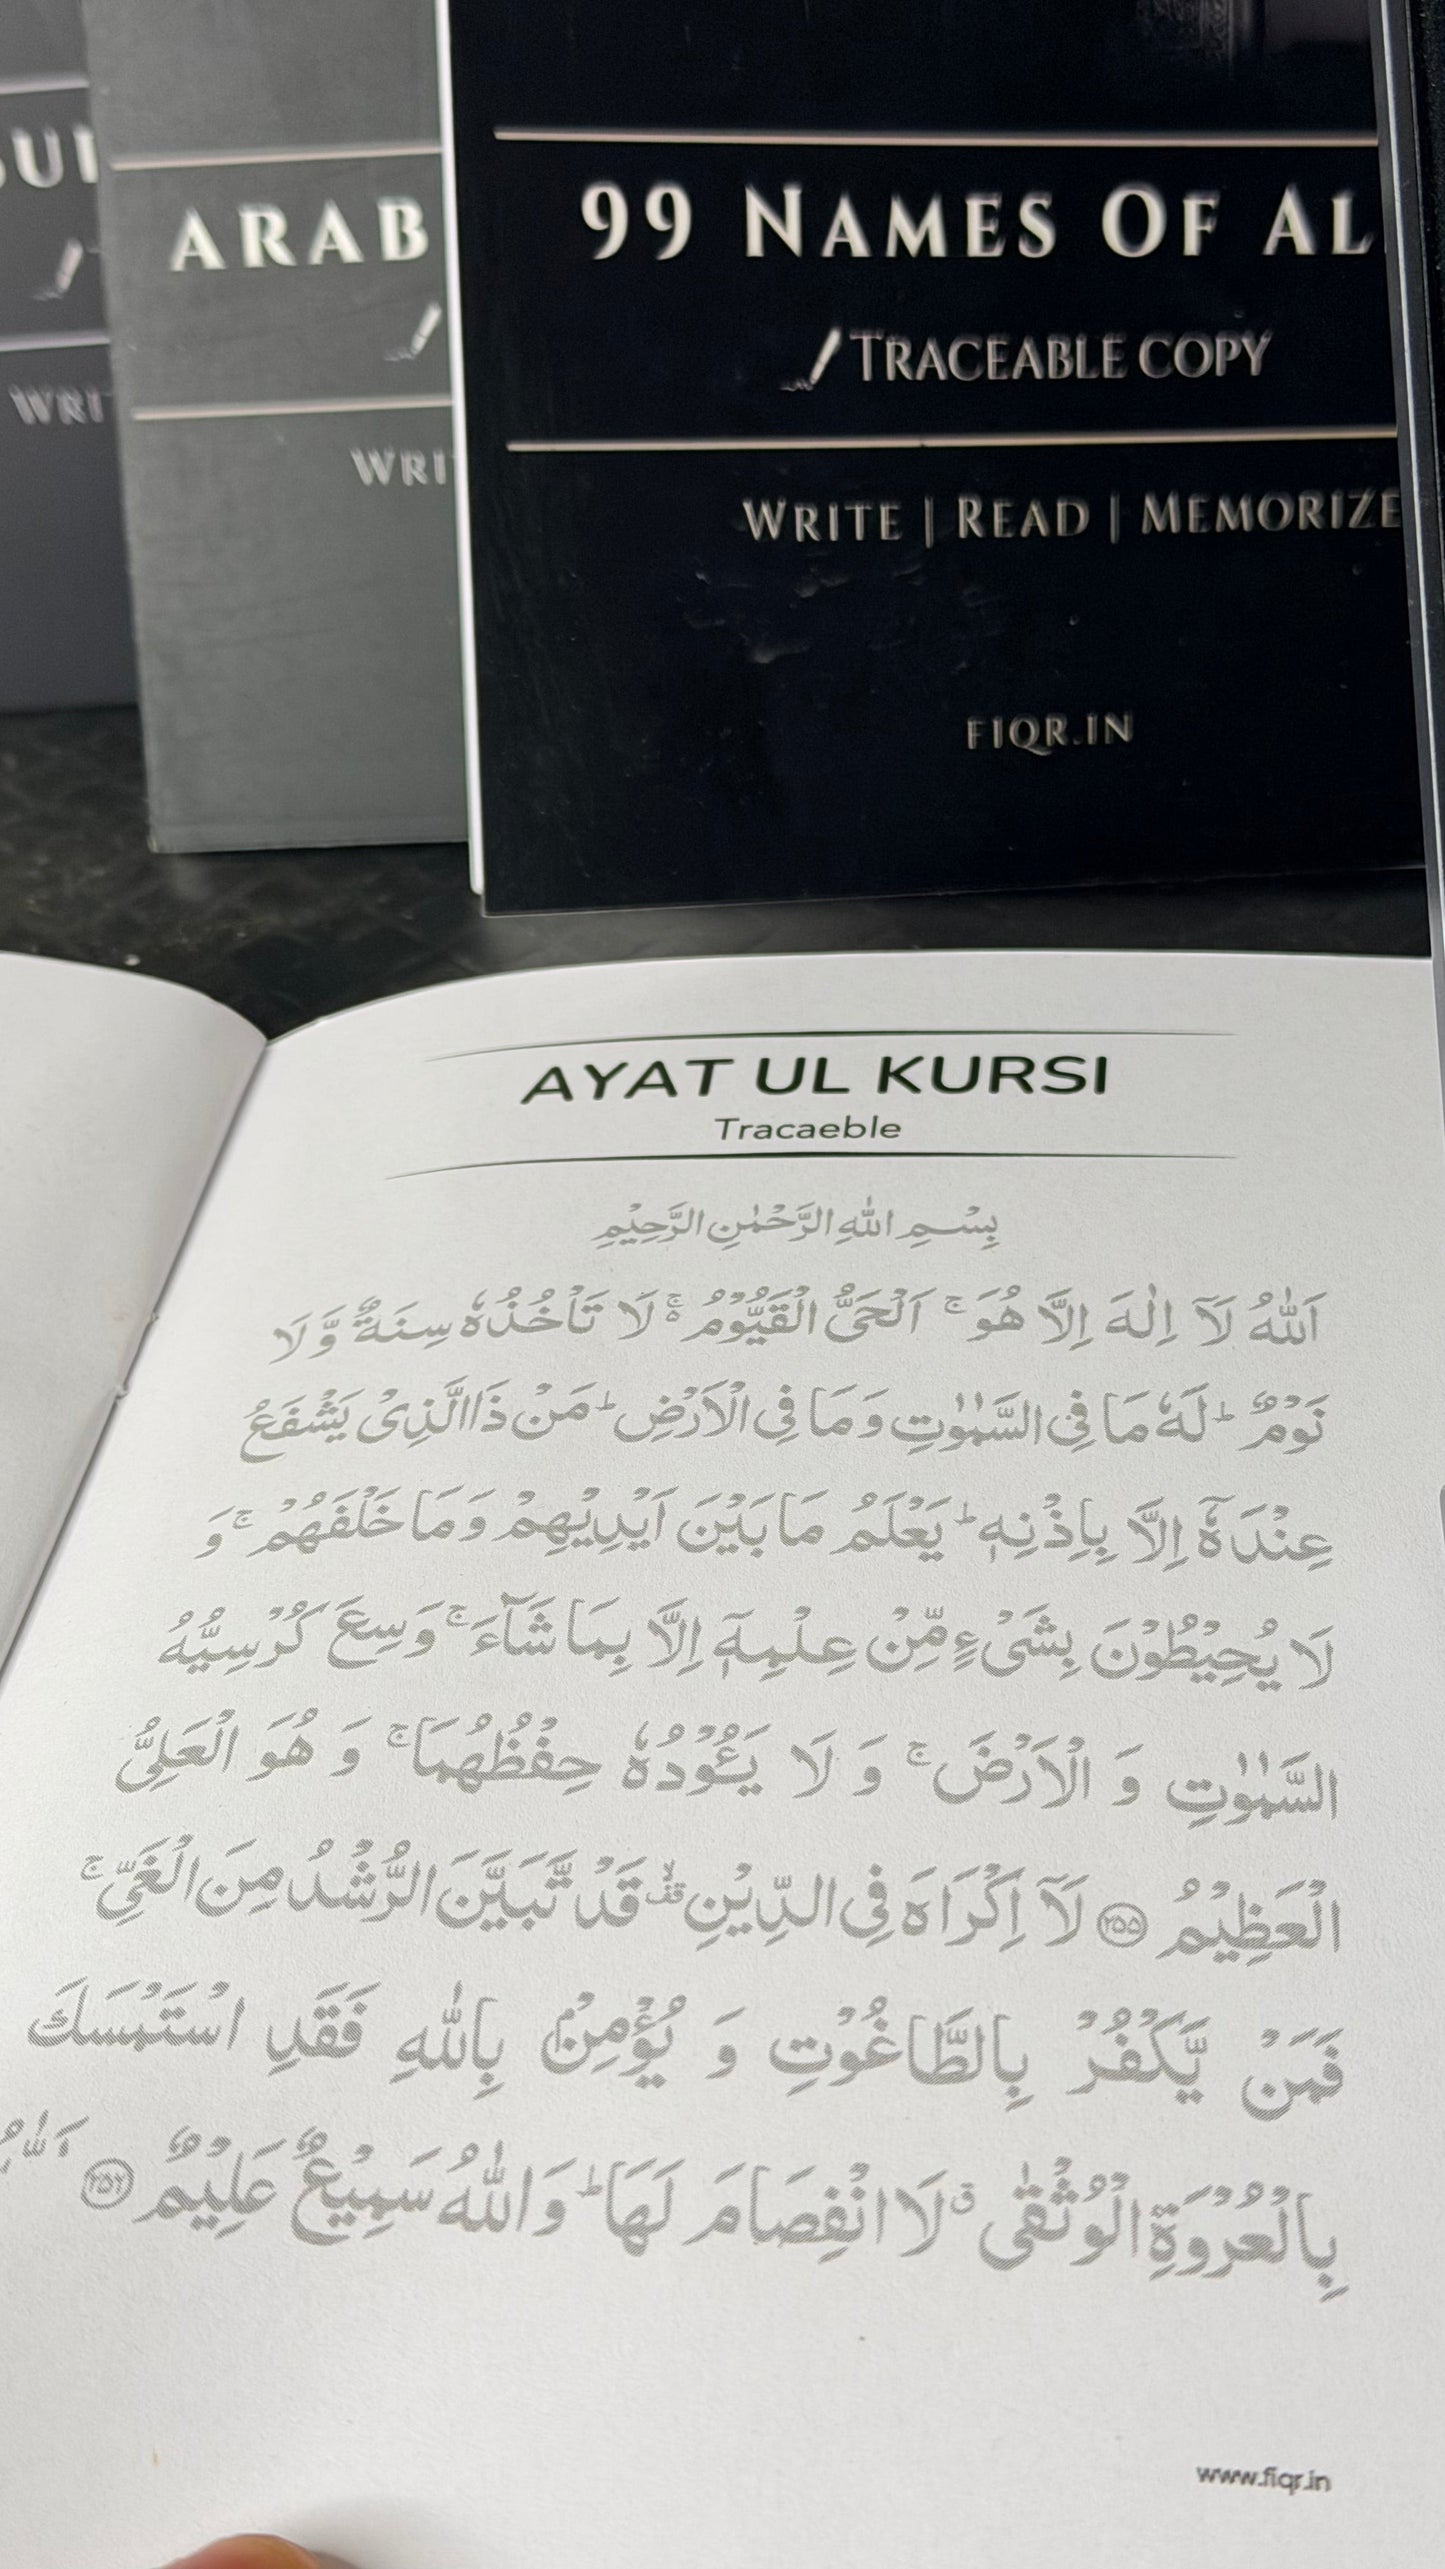 ARAB
WRI
99 NAMES OF AL
TRACEABLE COPY
WRITE | READ | MEMORIZE
FIQR.IN
WRI
AYAT UL KURSI
Tracaeble
بِسْمِ اللهِ الرَّحْمٰنِ الرَّحِيْمِ
اَللّٰهُ لَآ اِلٰهَ اِلَّا هُوَ ۚ اَلْحَىُّ الْقَيُّوْمُ ۬ۚ لَا تَاْخُذُهٗ سِنَةٌ وَّلَا
نَوْمٌ ؕ لَهٗ مَا فِى السَّمٰوٰتِ وَمَا فِى الْاَرْضِ ؕ مَنْ ذَا الَّذِىْ يَشْفَعُ
عِنْدَهٗۤ اِلَّا بِاِذْنِهٖ ؕ يَعْلَمُ مَا بَيْنَ اَيْدِيْهِمْ وَمَا خَلْفَهُمْ ۚ وَ
لَا يُحِيْطُوْنَ بِشَىْءٍ مِّنْ عِلْمِهٖۤ اِلَّا بِمَا شَآءَ ۚ وَسِعَ كُرْسِيُّهُ
السَّمٰوٰتِ وَ الْاَرْضَ ۚ وَ لَا يَــُٔوْدُهٗ حِفْظُهُمَا ۚ وَ هُوَ الْعَلِىُّ
الْعَظِيْمُ ﴿۲۵۵﴾ لَآ اِكْرَاهَ فِى الدِّيْنِ ۙ قَدْ تَّبَيَّنَ الرُّشْدُ مِنَ الْغَىِّ ۚ
فَمَنْ يَّكْفُرْ بِالطَّاغُوْتِ وَ يُؤْمِنْۢ بِاللّٰهِ فَقَدِ اسْتَمْسَكَ
بِالْعُرْوَةِ الْوُثْقٰى ۗ لَا انْفِصَامَ لَهَا ؕ وَاللّٰهُ سَمِيْعٌ عَلِيْمٌ ﴿۲۵۶﴾ اَللّٰهُ
www.fiqr.in